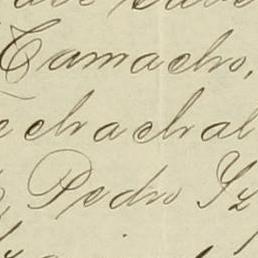 Camacho,
echachal
Pedro Yz